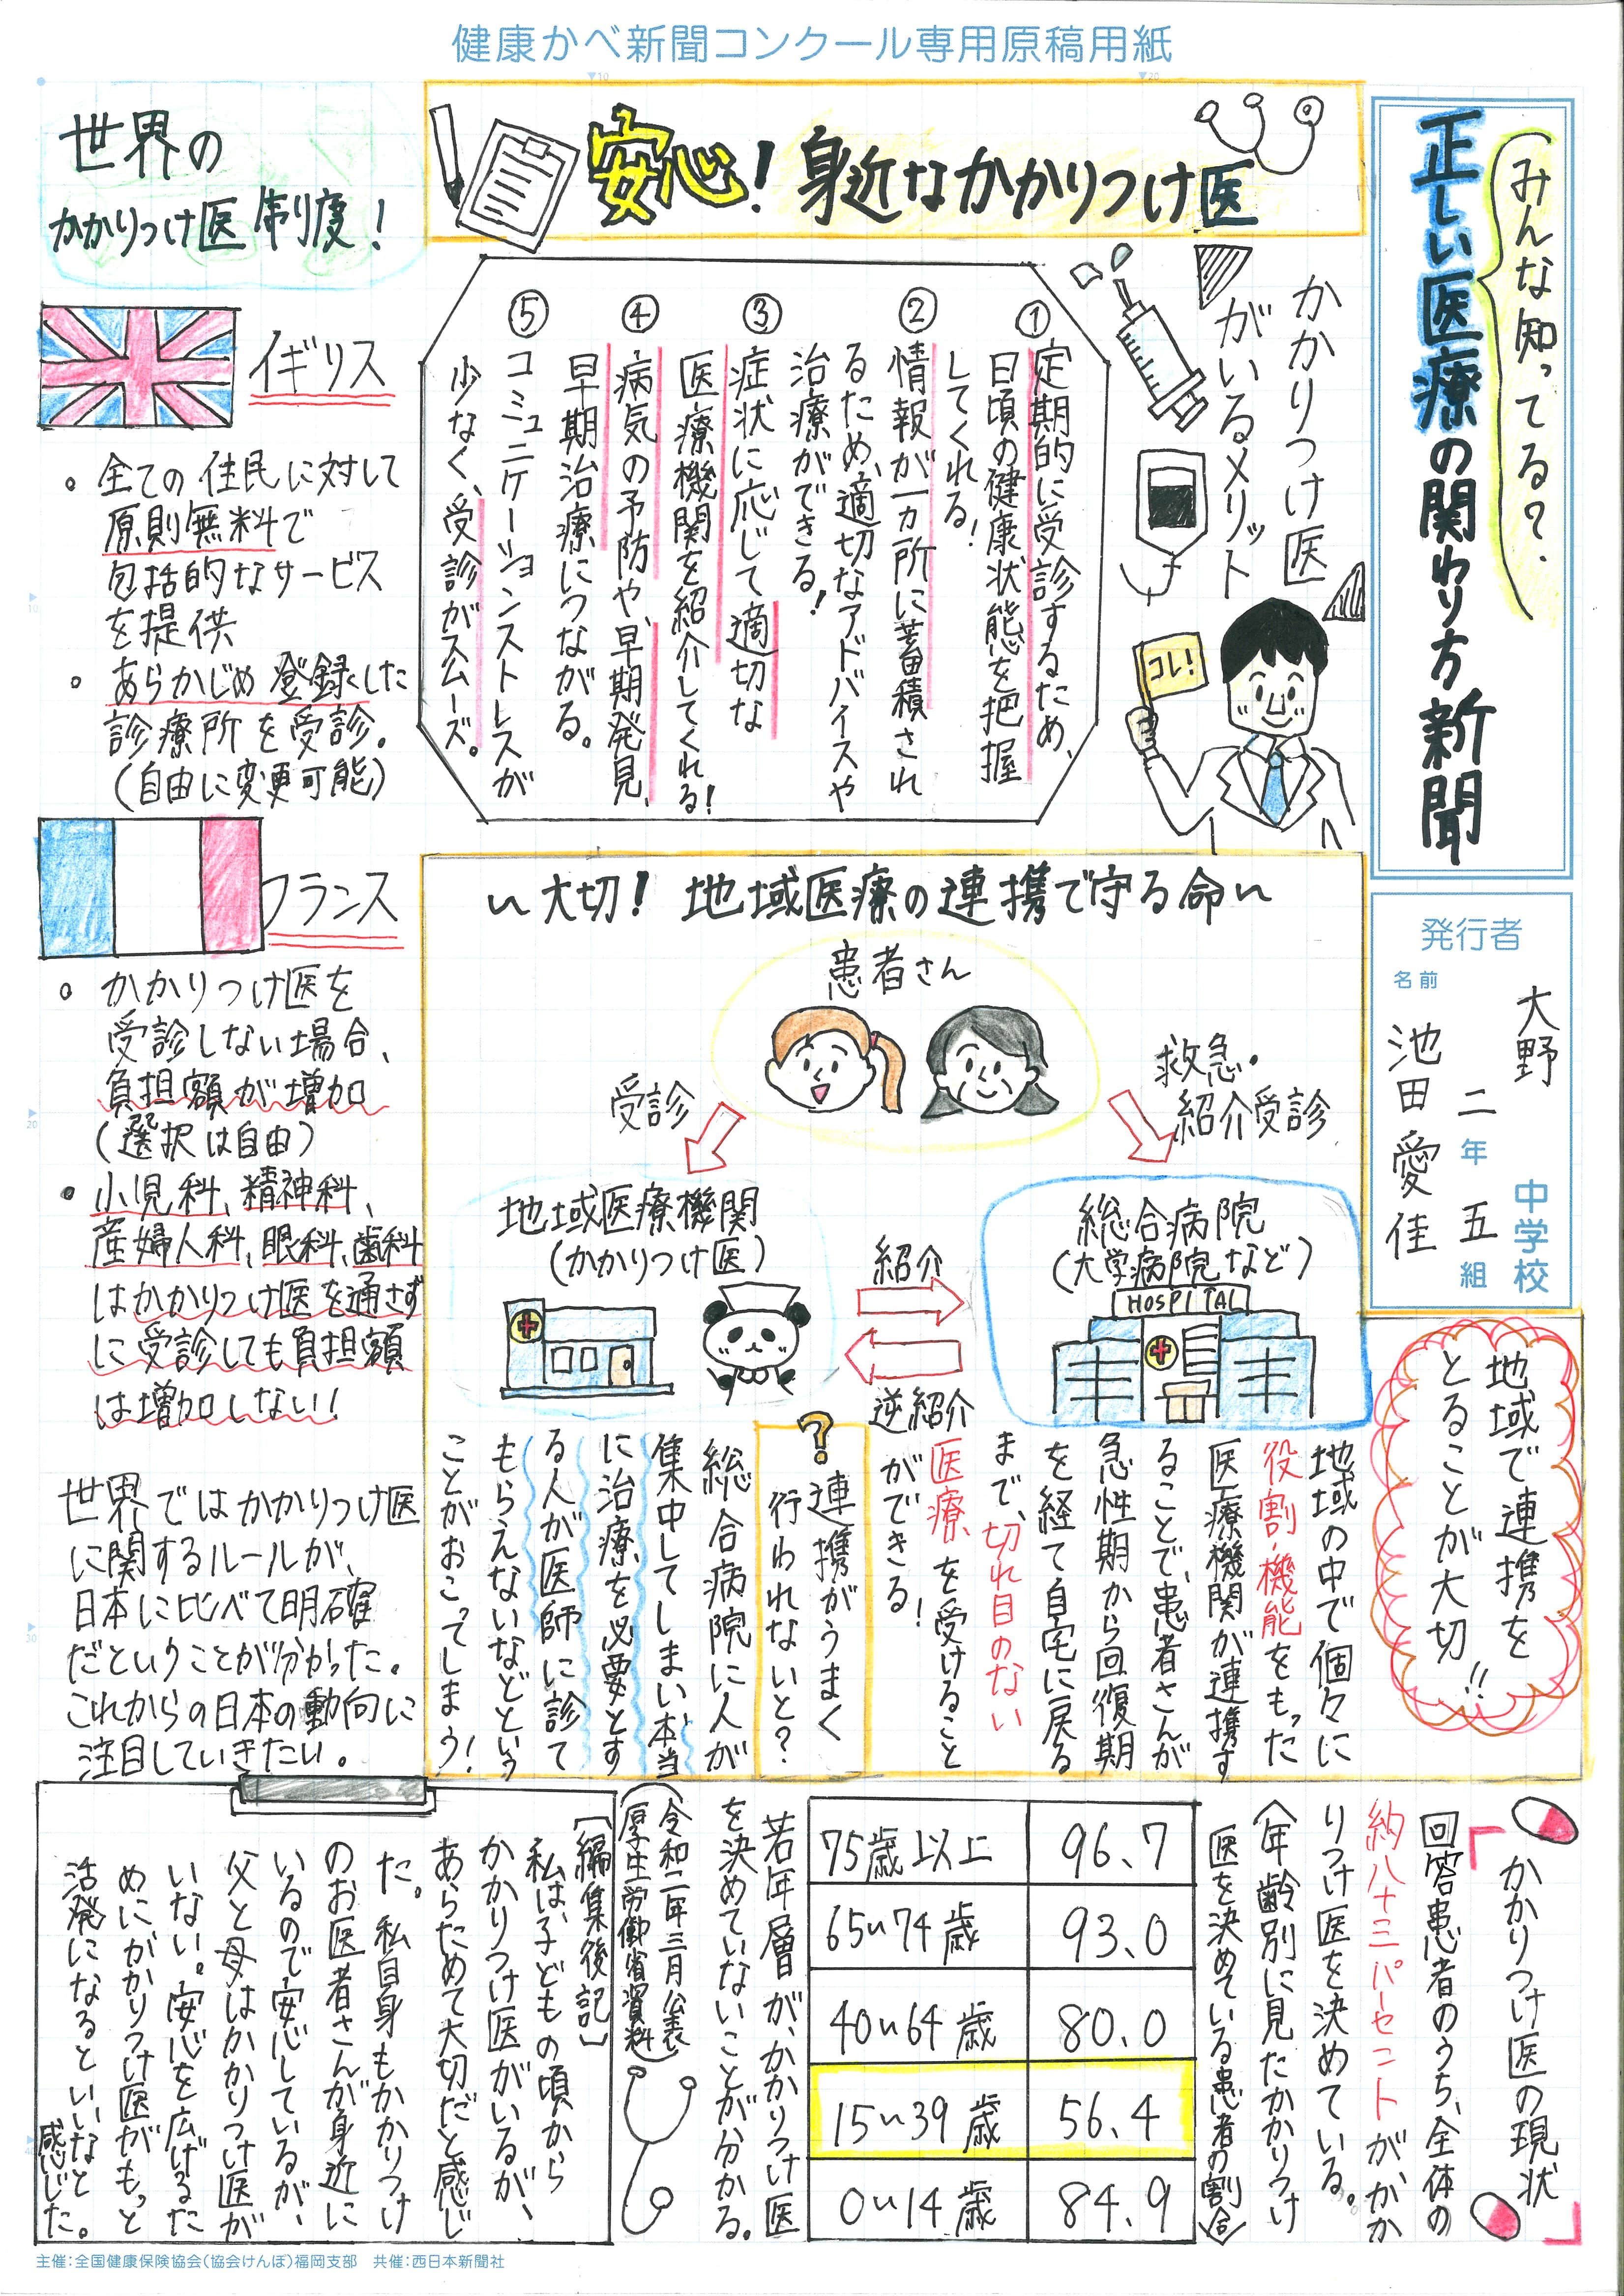 健康かべ新聞コンクール専用原稿用紙
みんな知ってる?
正しい医療の関わり方新聞
発行者
名前
大野
中学校
二年五組
池田愛佳
安心!身近なかかりつけ医
かかりつけ医
がいるメリット
コレ!
①
定期的に受診するため、
日頃の健康状態を把握
してくれる!
②
情報が一カ所に蓄積され
るため、適切なアドバイスや
治療ができる!
③
症状に応じて適切な
医療機関を紹介してくれる!
④
病気の予防や、早期発見、
早期治療につながる。
⑤
コミュニケーションストレスが
少なく、受診がスムーズ。
世界の
かかりつけ医制度!
イギリス
。全ての住民に対して
原則無料で
包括的なサービス
を提供
。あらかじめ登録した
診療所を受診。
(自由に変更可能)
フランス
。かかりつけ医を
受診しない場合、
負担額が増加
(選択は自由)
・小児科、精神科、
産婦人科、眼科、歯科
はかかりつけ医を通さず
に受診しても負担額
は増加しない!
世界ではかかりつけ医
に関するルールが、
日本に比べて明確
だということが分かった。
これからの日本の動向に
注目していきたい。
〜大切!地域医療の連携で守る命〜
患者さん
受診
救急・
紹介受診
地域医療機関
(かかりつけ医)
紹介
逆紹介
総合病院
(大学病院など)
HOSPITAL
地域で連携を
とることが大切!!
地域の中で個々に
役割・機能をもった
医療機関が連携す
ることで、患者さんが
急性期から回復期
を経て自宅に戻る
まで、切れ目のない
医療を受けること
ができる!
?
連携がうまく
行われないと?
総合病院に人が
集中してしまい、本当
に治療を必要とす
る人が医師に診て
もらえないなどという
ことがおこってしまう!
「かかりつけ医の現状」
回答患者のうち、全体の
約八十三パーセントがかか
りつけ医を決めている。
〈年齢別に見たかかりつけ
医を決めている患者の割合〉
75歳以上 96.7
65〜74歳 93.0
40〜64歳 80.0
15〜39歳 56.4
0〜14歳 84.9
若年層が、かかりつけ医
を決めていないことが分かる。
(令和二年三月公表
厚生労働省資料)
[編集後記]
私は、子どもの頃から
かかりつけ医がいるが、
あらためて大切だと感じ
た。私自身もかかりつけ
のお医者さんが身近に
いるので安心しているが、
父と母はかかりつけ医が
いない。安心を広げるた
めにかかりつけ医がもっと
活発になるといいなと
感じた。
主催:全国健康保険協会(協会けんぽ)福岡支部 共催:西日本新聞社